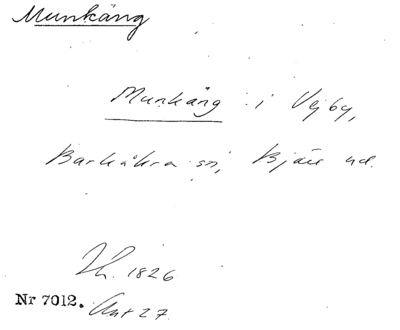 Munkäng
Munkäng i Vejby,
Barkåkra sn, Bjäre hd.
Lh. 1826
Nr 7012. Akt 27.